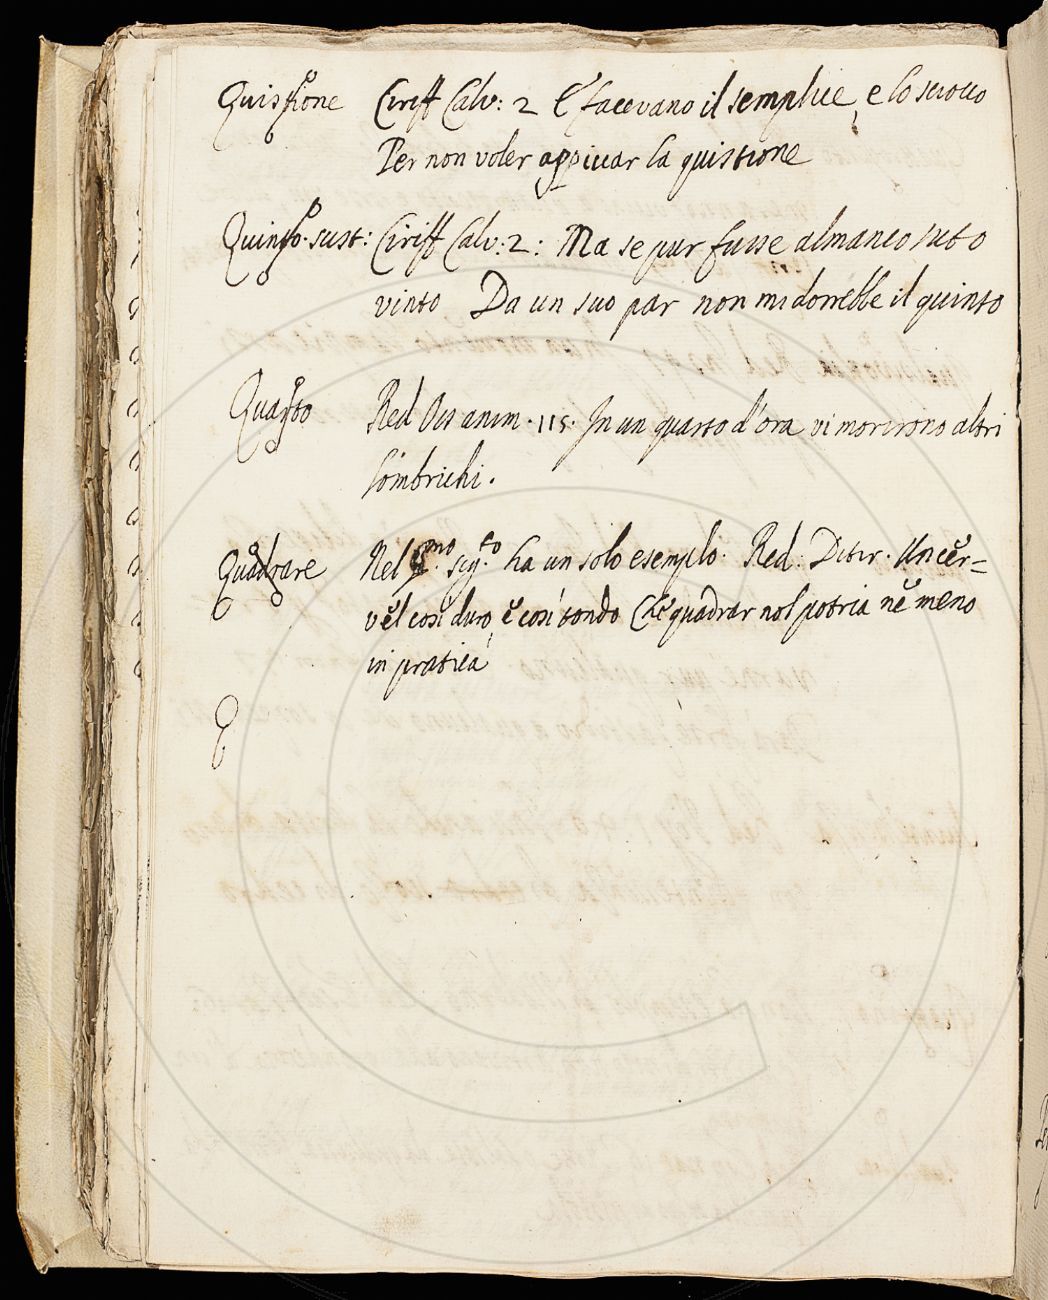 Quistione Ciriff Calv: 2 E' facevano il semplice, e lo sciocco
Per non voler appiccar la quistione
Quinto. sust: Ciriff Calv: 2: Ma se pur fusse almanco suto
vinto Da un suo par non mi dorrebbe il quinto
Quarto Red Oss anim. 115. In un quarto d'ora vi morirono altri
lombrichi.
Quadrare Nel pmo. sigto. ha un solo esemplo. Red. Ditir. Un cer=
vel così duro, e così tondo Che quadrar nol potria ne meno
in pratica